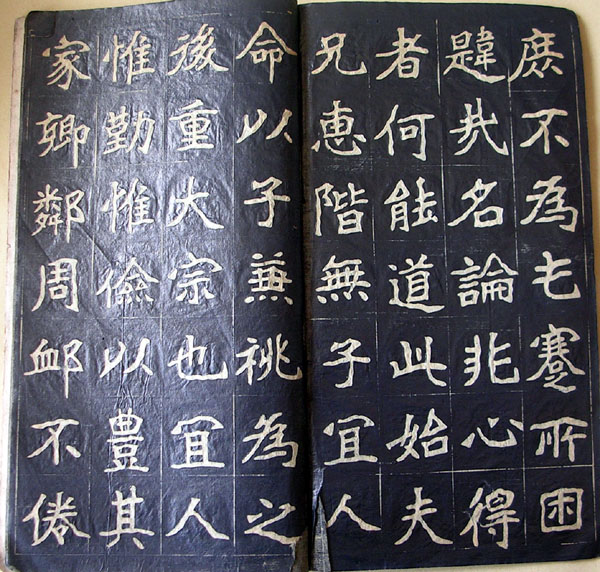 庶不為屯蹇所困
韙哉名論非心得
者何能道此始夫
兄惠階無子宜人
命以子兼祧為之
後重大宗也宜人
惟勤惟儉以豐其
家鄉鄰周卹不倦